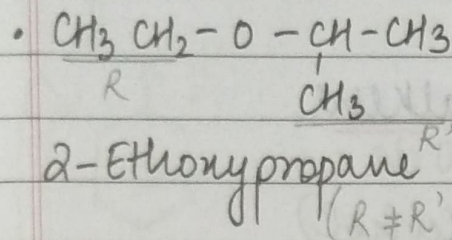 • CH3 CH2 - O - CH - CH3
R
CH3
R'
2-Ethoxypropane
(R ≠ R'